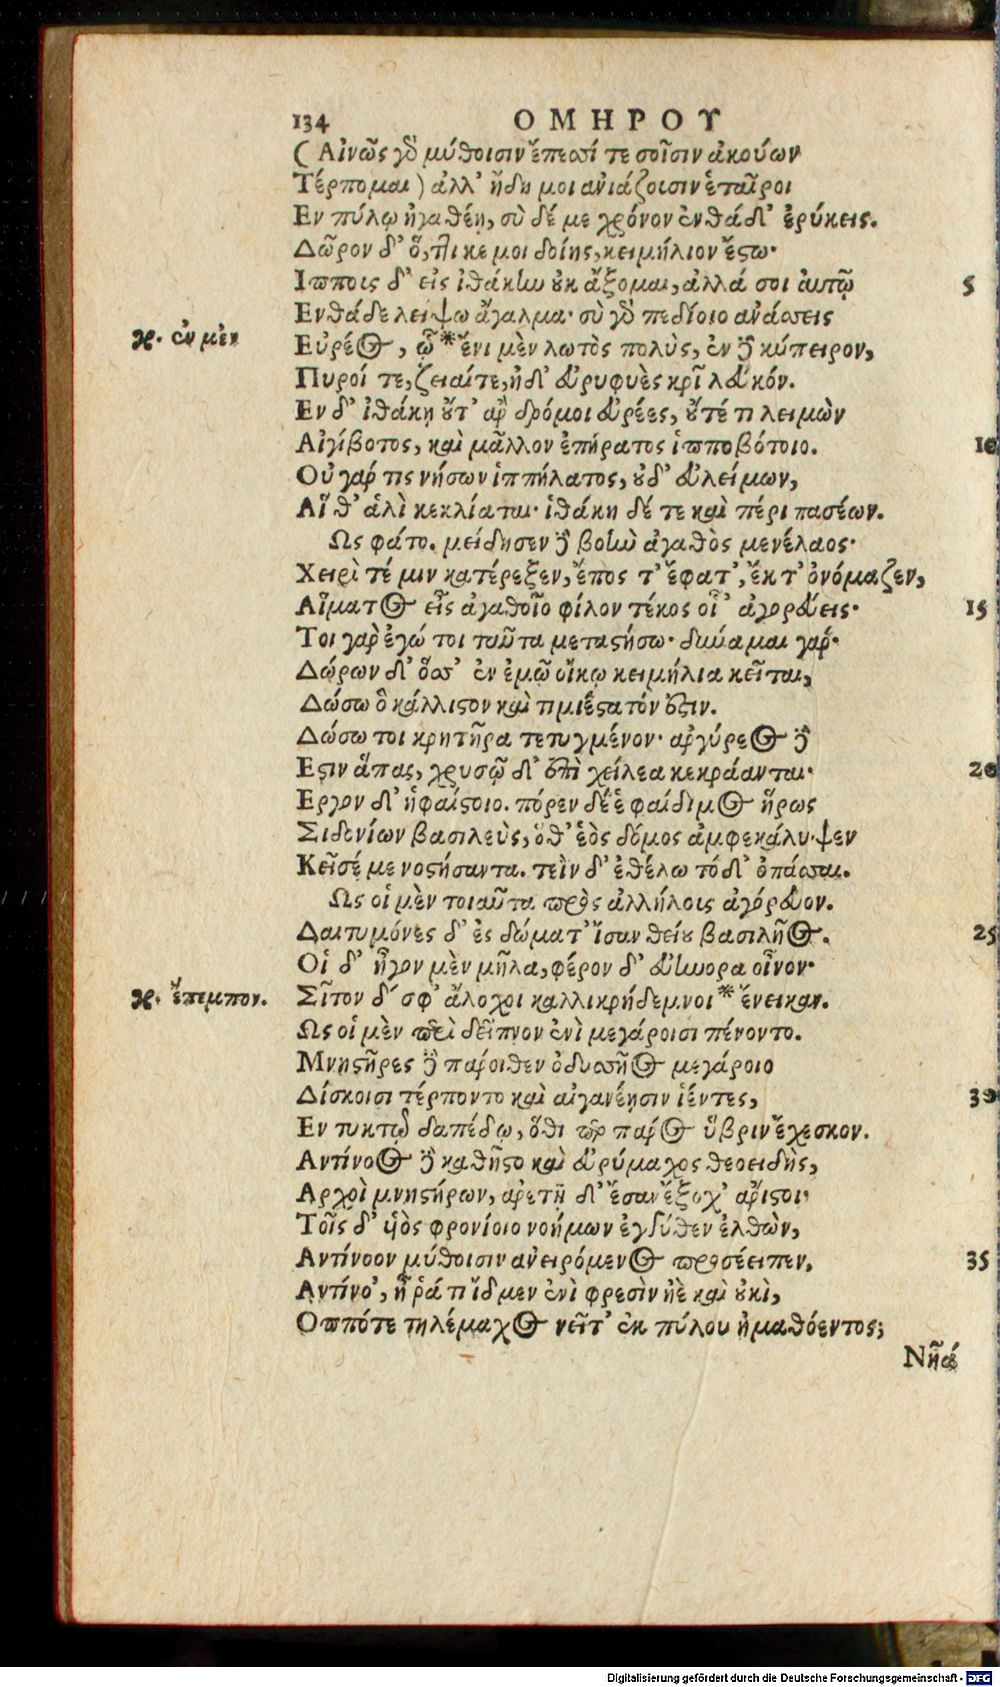 134 ΟΜΗΡΟΥ
(Αἰνῶς γὸ μύθοισιν ἔπεσσί τε σοῖσιν ἀκούων
Τέρπομαι) ἀλλ' ἤδη μοι ἀνιάζοισιν ἑταῖροι
Εν πύλῳ ἠγαθέῃ, σὺ δέ με χρόνον ἐνθάδ' ἐρύκεις.
Δῶρον δ' ὅ, τι κε μοι δοίης, κειμήλιον ἔςω·
Ιπποις δ' εἰς ἰθάκην ȣκ ἄξομαι, ἀλλά σοι αὐτῷ 5
Ενθάδε λείψω ἄγαλμα· σὺ γὸ πεδίοιο ἀνάσσεις
ϗ. ἐν μὲν
Εὐρέος, ᾧ * ἔνι μὲν λωτὸς πολὺς, ἐν δὲ κύπειρον,
Πυροί τε, ζειαίτε, ἠδ' εὐρυφυὲς κρῖ λευκόν.
Εν δ' ἰθάκῃ ȣ̓́τ' ἀρ δρόμοι εὐρέες, ȣ̓́τέ τι λειμὼν
Αἰγίβοτος, καὶ μᾶλλον ἐπήρατος ἱπποβότοιο. 10
Οὐ γάρ τις νήσων ἱππήλατος, ȣδ' εὐλείμων,
Αἵ θ' ἁλὶ κεκλίαται· ἰθάκη δέ τε καὶ πέρι πασέων.
Ως φάτο. μείδησεν δὲ βοὴν ἀγαθὸς μενέλαος·
Χειρὶ τέ μιν κατέρεξεν, ἔπος τ' ἔφατ', ἔκ τ' ὀνόμαζεν,
Αἵματος εἶς ἀγαθοῖο φίλον τέκος οἷ' ἀγορεύεις· 15
Τοι γαρ ἐγώ τοι ταῦτα μεταςήσω· δύναμαι γάρ·
Δώρων δ' ὅσσ' ἐν ἐμῷ οἴκῳ κειμήλια κεῖται,
Δώσω ὃ κάλλιςον καὶ τιμιέςατόν ἐςιν.
Δώσω τοι κρητῆρα τετυγμένον· ἀργύρεος δὲ
Εςιν ἅπας, χρυσῷ δ' ἐπὶ χείλεα κεκράανται· 20
Εργον δ' ἡφαίςοιο. πόρεν δέ ἑ φαίδιμος ἥρως
Σιδονίων βασιλεὺς, ὅθ' ἑὸς δόμος ἀμφεκάλυψεν
Κεῖσέ με νοςήσαντα. τεῒν δ' ἐθέλω τόδ' ὀπάσσαι.
Ως οἱ μὲν τοιαῦτα πρὸς ἀλλήλοις ἀγόρευον.
Δαιτυμόνες δ' ἐς δώματ' ἴσαν θείȣ βασιλῆος. 25
Οἱ δ' ἦγον μὲν μῆλα, φέρον δ' εὐήνορα οἶνον·
ϗ. ἔπεμπον.
Σῖτον δ' σφ' ἄλοχοι καλλικρήδεμνοι * ἔνεικαν.
Ως οἱ μὲν περὶ δεῖπνον ἐνὶ μεγάροισι πένοντο.
Μνηςῆρες δὲ πάροιθεν ὀδυσσῆος μεγάροιο
Δίσκοισι τέρποντο καὶ αἰγανέῃσιν ἱέντες, 30
Εν τυκτῷ δαπέδῳ, ὅθι περ πάρος ὕβριν ἔχεσκον.
Αντίνοος δὲ καθῆςο καὶ εὐρύμαχος θεοειδὴς,
Αρχοὶ μνηςήρων, ἀρετῇ δ' ἔσαν ἔξοχ' ἄριςοι·
Τοῖς δ' ὑὸς φρονίοιο νοήμων ἐγγύθεν ἐλθὼν,
Αντίνοον μύθοισιν ἀνειρόμενος προσέειπεν, 35
Αντίνο', ἦ ῥά τι ἴδμεν ἐνὶ φρεσὶν ἠὲ καὶ ȣκὶ,
Οππότε τηλέμαχος νεῖτ' ἐκ πύλου ἠμαθόεντος;
Νῆά
Digitalisierung gefördert durch die Deutsche Forschungsgemeinschaft - DFG